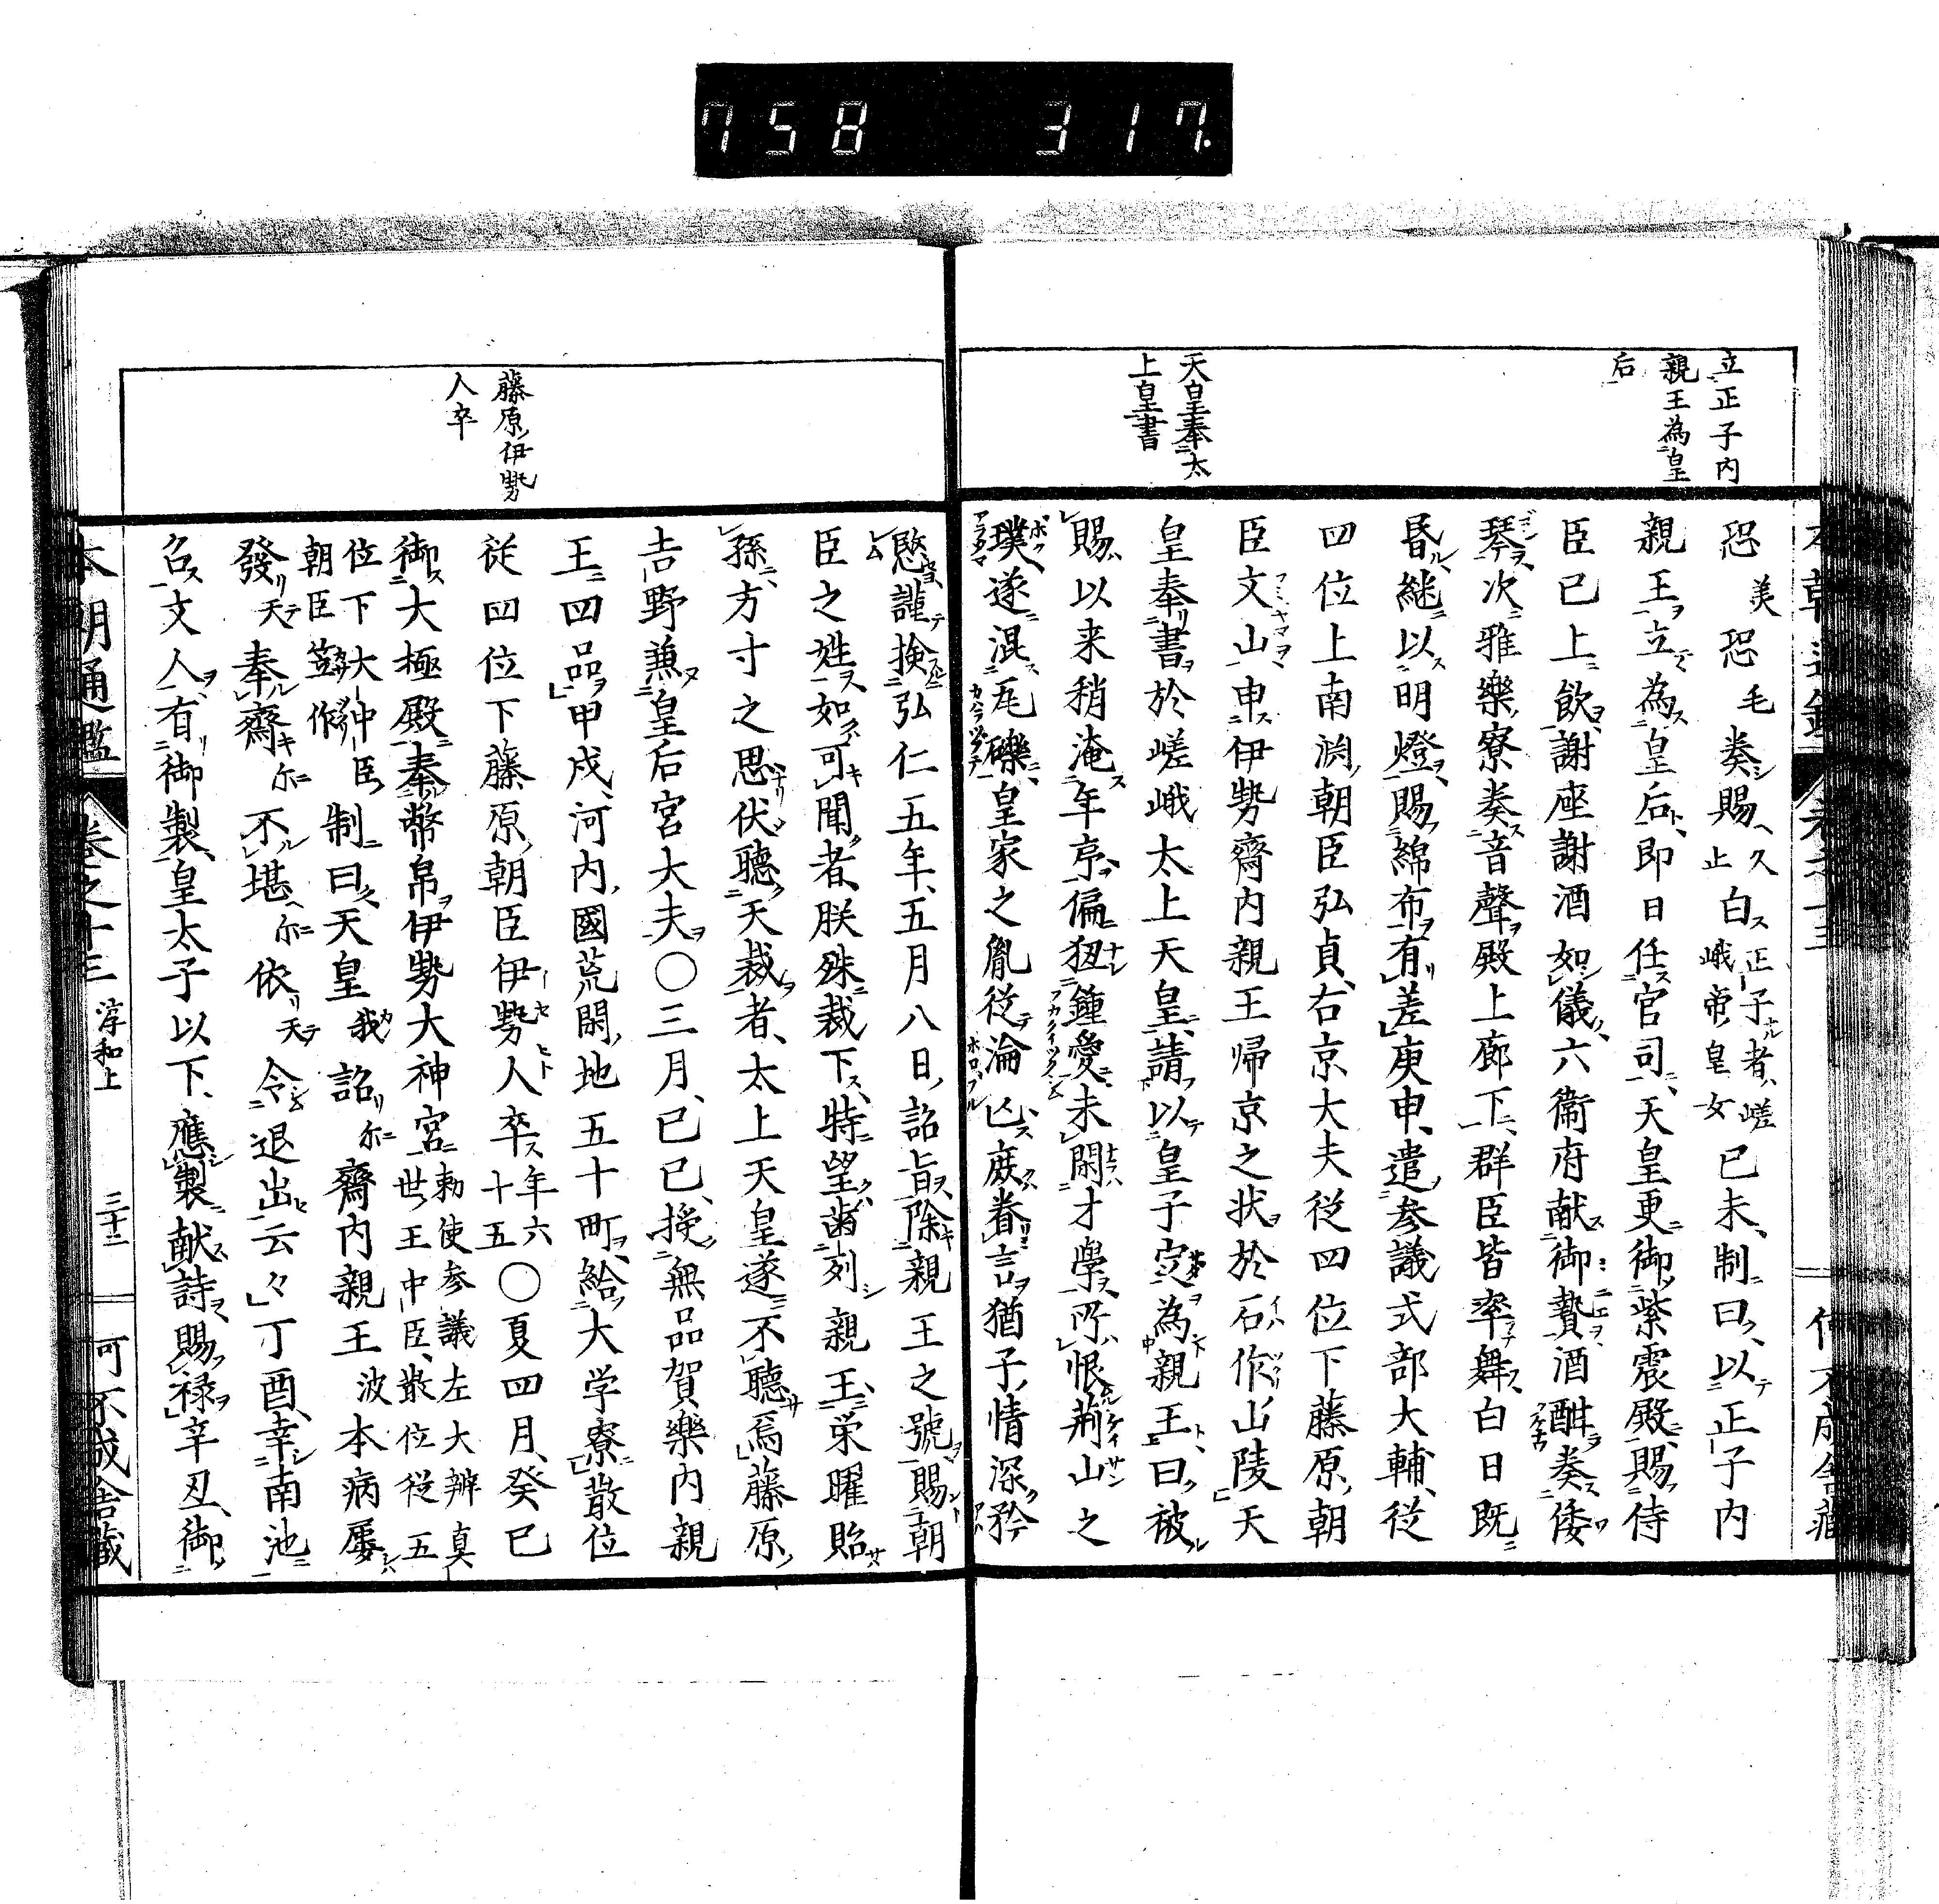 758 317.
立正子内
親王為皇
后
天皇奉太
上皇書
恐美恐毛奏賜久止白正子者嵯峨帝皇女已未制曰以正子内
親王立為皇后即日任官司天皇更御紫震殿賜侍
臣已上飲謝座謝酒如儀六衞府献御贄酒酣奏倭
琴次雅樂寮奏音聲殿上廊下群臣皆率舞白日既
昏継以明燈賜綿布有差庚申遣参議式部大輔從
四位上南淵朝臣弘貞右京大夫從四位下藤原朝
臣文山申伊勢齋内親王帰京之状於石作山陵天
皇奉書於嵯峨太上天皇請以皇子定為親王曰被
賜以来稍淹年序偏狃鍾愛未閑才學所恨荆山之
璞遂混瓦礫皇家之胤從淪亾庶眷言猶子情深矜
愍謹撿弘仁五年五月八日詔旨除親王之號賜朝
臣之姓如可聞者朕殊裁下特望齒列親王栄曜貽
孫方寸之思伏聽天裁者太上天皇遂不聽焉藤原
吉野兼皇后宮大夫〇三月已已授無品賀樂内親
王四品甲戌河内國荒閑地五十町給大学寮散位
從四位下藤原朝臣伊勢人卒年六十五〇夏四月癸巳
御大極殿奉幣帛伊勢大神宮勅使参議左大辨真世王中臣散位從五
位下大中臣朝臣笠作制曰天皇我詔尓齋内親王波本病屡
發天奉齋尓不堪尓依天令退出云々丁酉幸南池
召文人有御製皇太子以下應製献詩賜禄辛丑御
藤原伊勢
人卒
本朝通鑑 卷之十三 淳和上 三十二 可不成舎藏